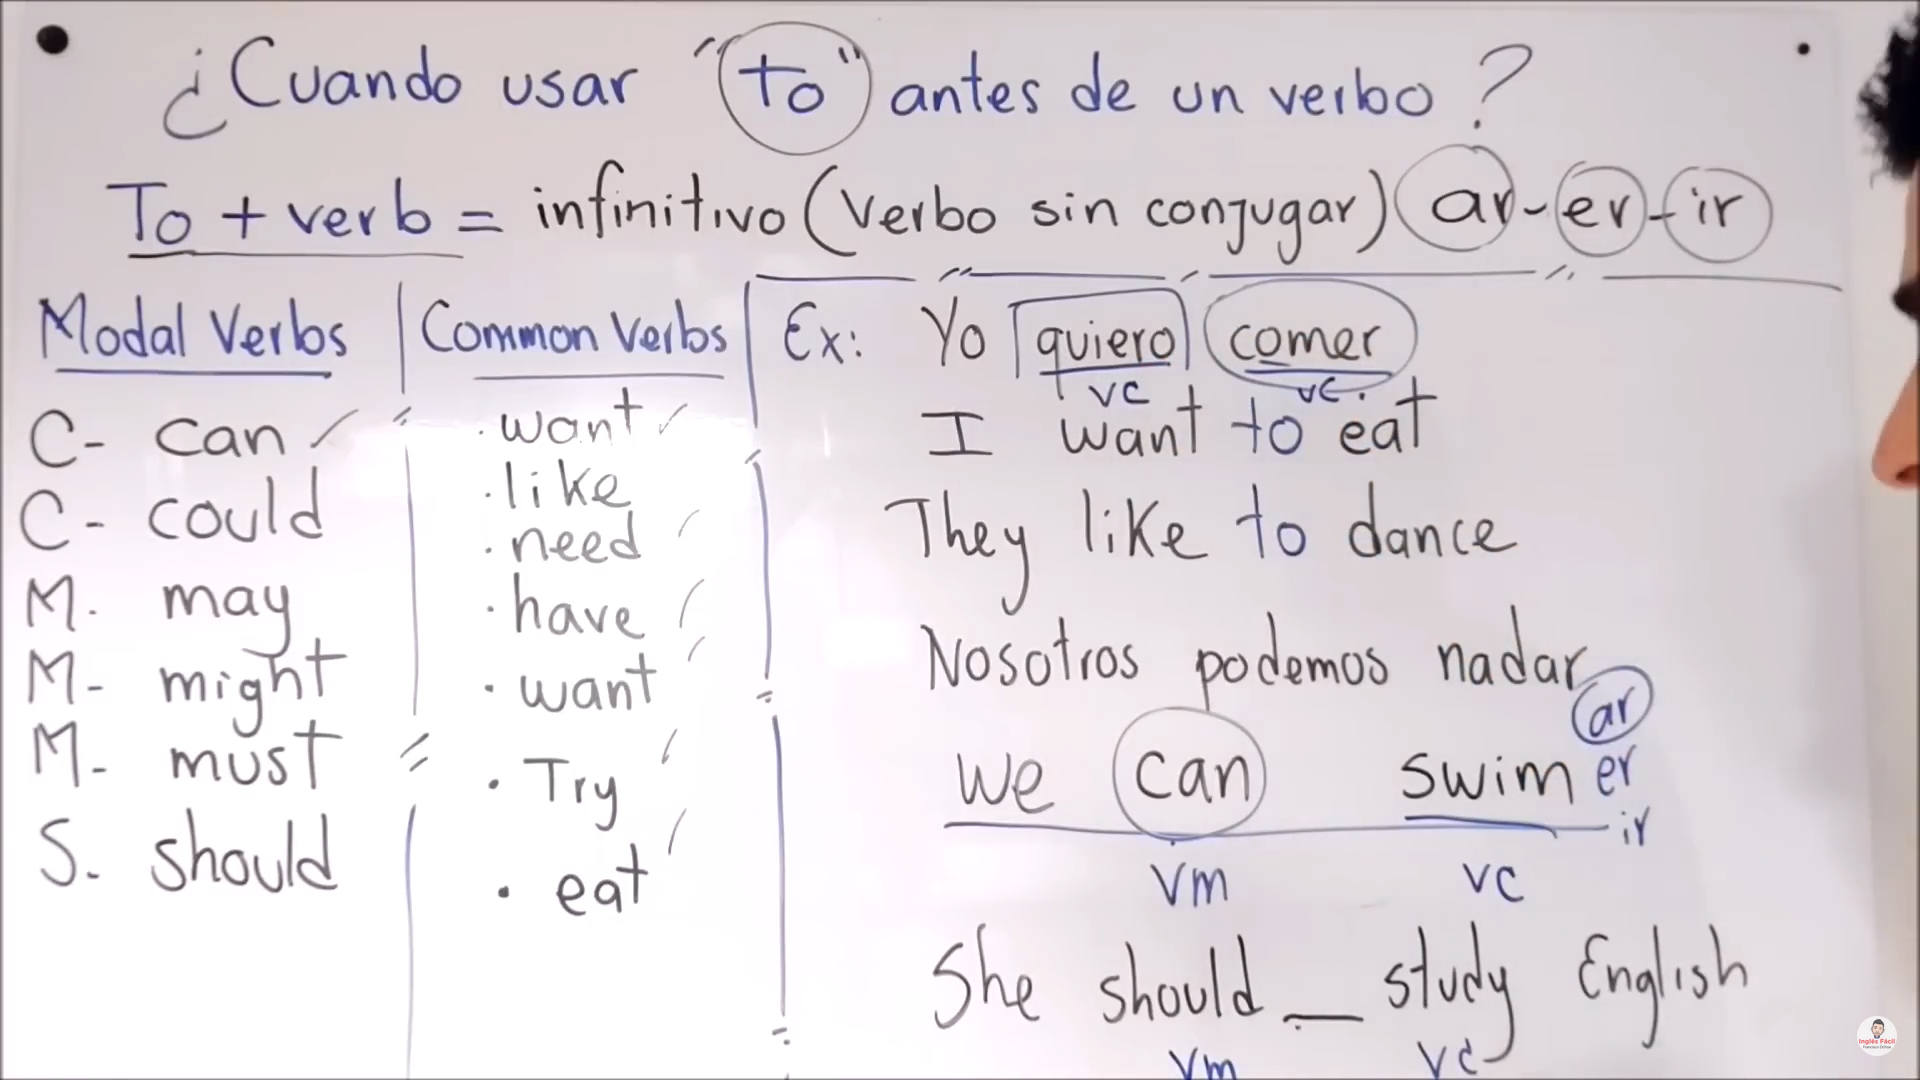 ¿Cuando usar "to" antes de un verbo?
To + verb = infinitivo (Verbo sin conjugar) ar-er-ir
Modal Verbs
C- can
C- could
M. may
M- might
M- must
S. should
Common Verbs
· want
· like
· need
· have
· want
· Try
· eat
Ex: Yo quiero comer
vc vc.
I want to eat
They like to dance
Nosotros podemos nadar
ar
er
ir
We can swim
vm vc
She should __ study English
vm vc
Inglés Fácil